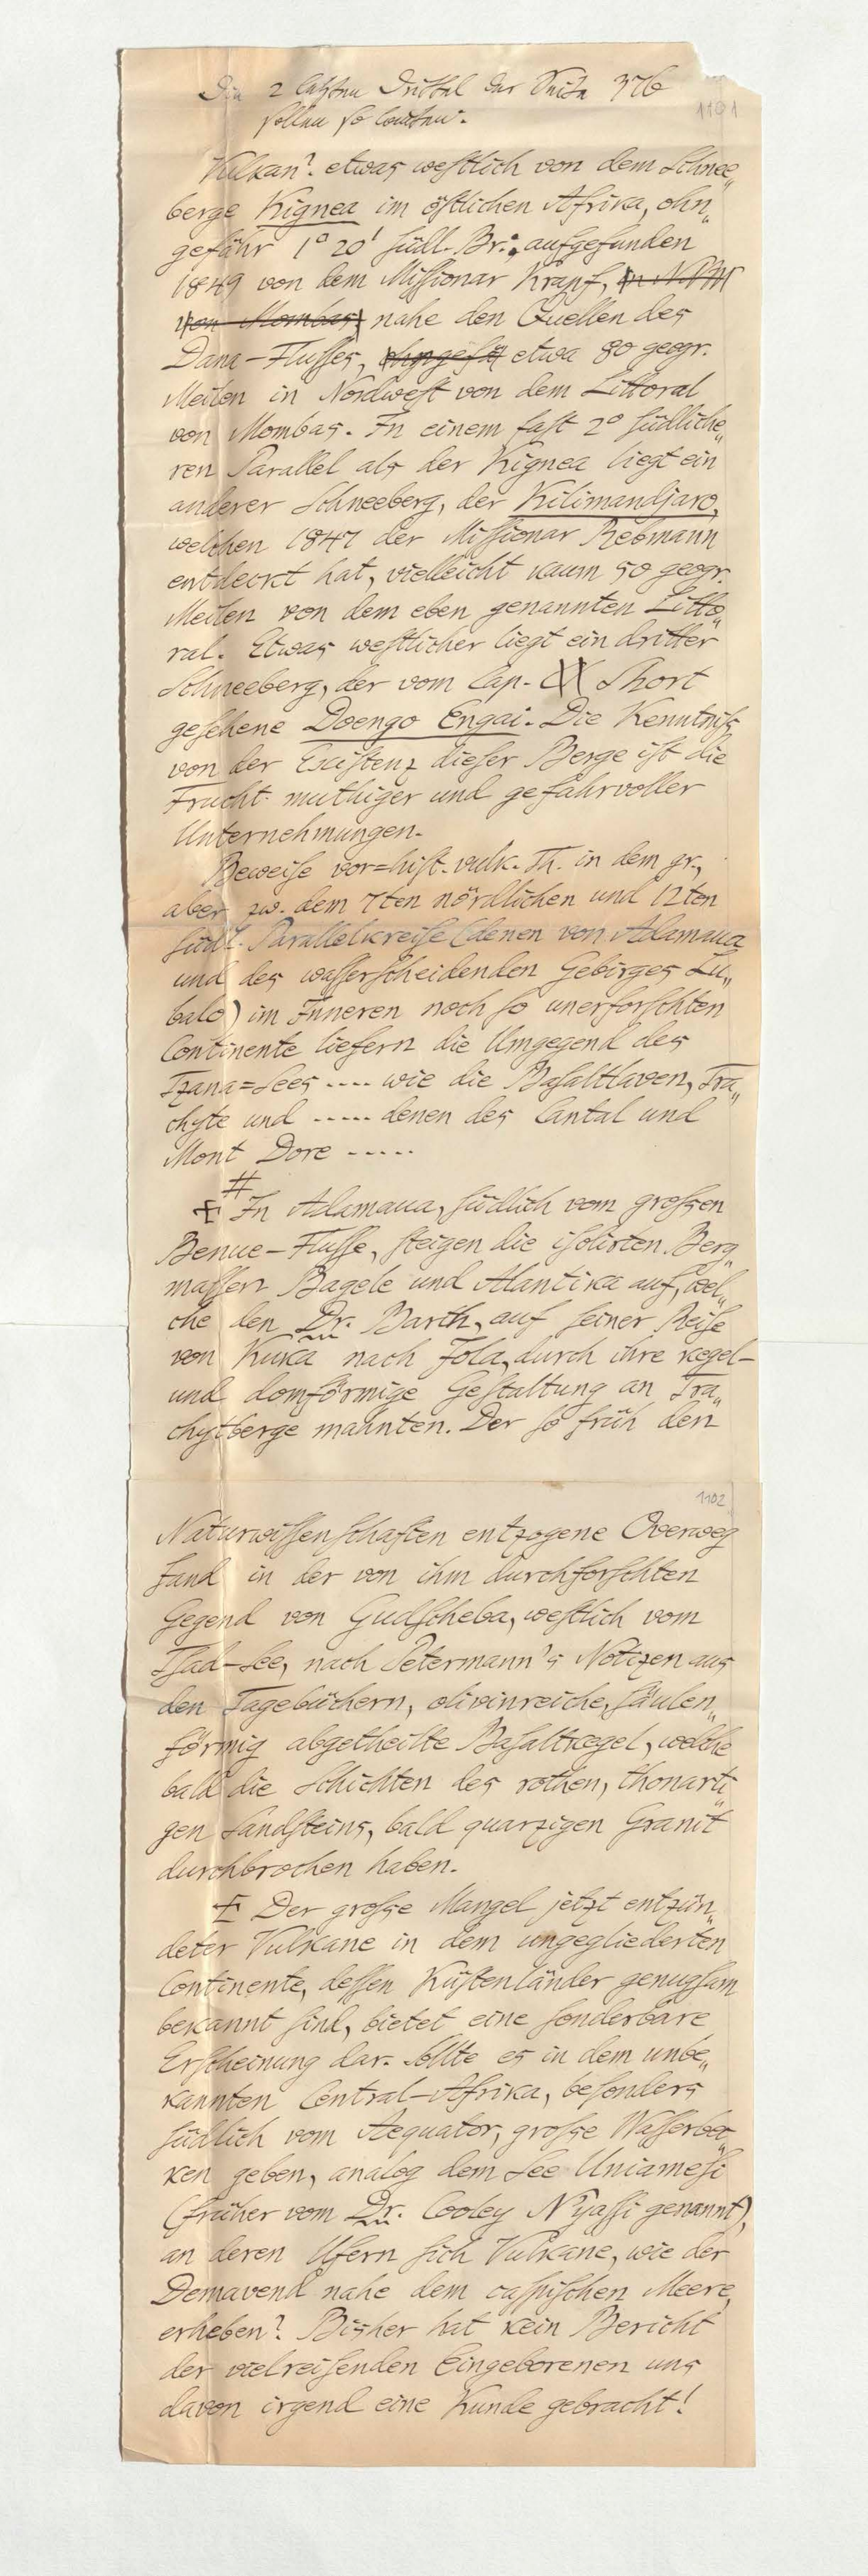 Die 2 letzten Drittel der Seite 376
1101
sollen so lauten:
Vulkan?. etwas westlich von dem Schnee„
berge Kignea im östlichen Afrika, ohn„
gefähr 1° 20' südl. Br.; aufgefunden
1849 von dem Missionar Krapf, in NW
von Mombas, nahe den Quellen des
Dana-Flusses, ohngefä etwa 80 geogr.
Meilen in Nordwest von dem Littoral
von Mombas. In einem fast 2° südliche„
ren Parallel als der Kignea liegt ein
anderer Schneeberg, der Kilimandjaro,
welchen 1847 der Missionar Rebmann
entdeckt hat, vielleicht kaum 50 geogr.
Meilen von dem eben genannten Litto„
ral. Etwas westlicher liegt ein dritter
Schneeberg, der vom Cap. Short
gesehene Doengo Engai. Die Kenntniß
von der Existenz dieser Berge ist die
Frucht muthiger und gefahrvoller
Unternehmungen.
Beweise vor=hist. vulk. Th. in dem gr.,
aber zw. dem 7ten nördlichen und 12ten
südl. Parallelkreise (denen von Adamaua
und des wasserscheidenden Gebirges Lu„
balo) im Inneren noch so unerforschten
Continente liefern die Umgegend des
Tzana=Sees .... wie die Basaltlaven, Tra„
chyte und ..... denen des Cantal und
Mont Dore .....
# In Adamaua, südlich vom grossen
Benue-Flusse, steigen die isolirten Berg„
massen Bagele und Alantika auf, wel„
che den Dr. Barth, auf seiner Reise
von Kuka nach Jola, durch ihre kegel-
und domförmige Gestaltung an Tra„
chytberge mahnten. Der so früh den
1102
Naturwissenschaften entzogene Overweg
fand in der von ihm durchforschten
Gegend von Gudscheba, westlich vom
Tsad-See, nach Petermann's Notizen aus
den Tagebüchern, olivinreiche, säulen„
förmig abgetheilte Basaltkegel, welche
bald die Schichten des rothen, thonarti„
gen Sandsteins, bald quarzigen Granit
durchbrochen haben.
Der große Mangel jetzt entzün„
deter Vulkane in dem ungegliederten
Continente, dessen Küstenländer genugsam
bekannt sind, bietet eine sonderbare
Erscheinung dar. Sollte es in dem unbe„
kannten Central-Afrika, besonders
südlich vom Aequator, große Wasserbec„
ken geben, analog dem See Uniamesi
(früher vom Dr. Cooley N'yassi genannt),
an deren Ufern sich Vulkane, wie der
Demavend nahe dem caspischen Meere,
erheben? Bisher hat kein Bericht
der vielreisenden Eingeborenen uns
davon irgend eine Kunde gebracht!